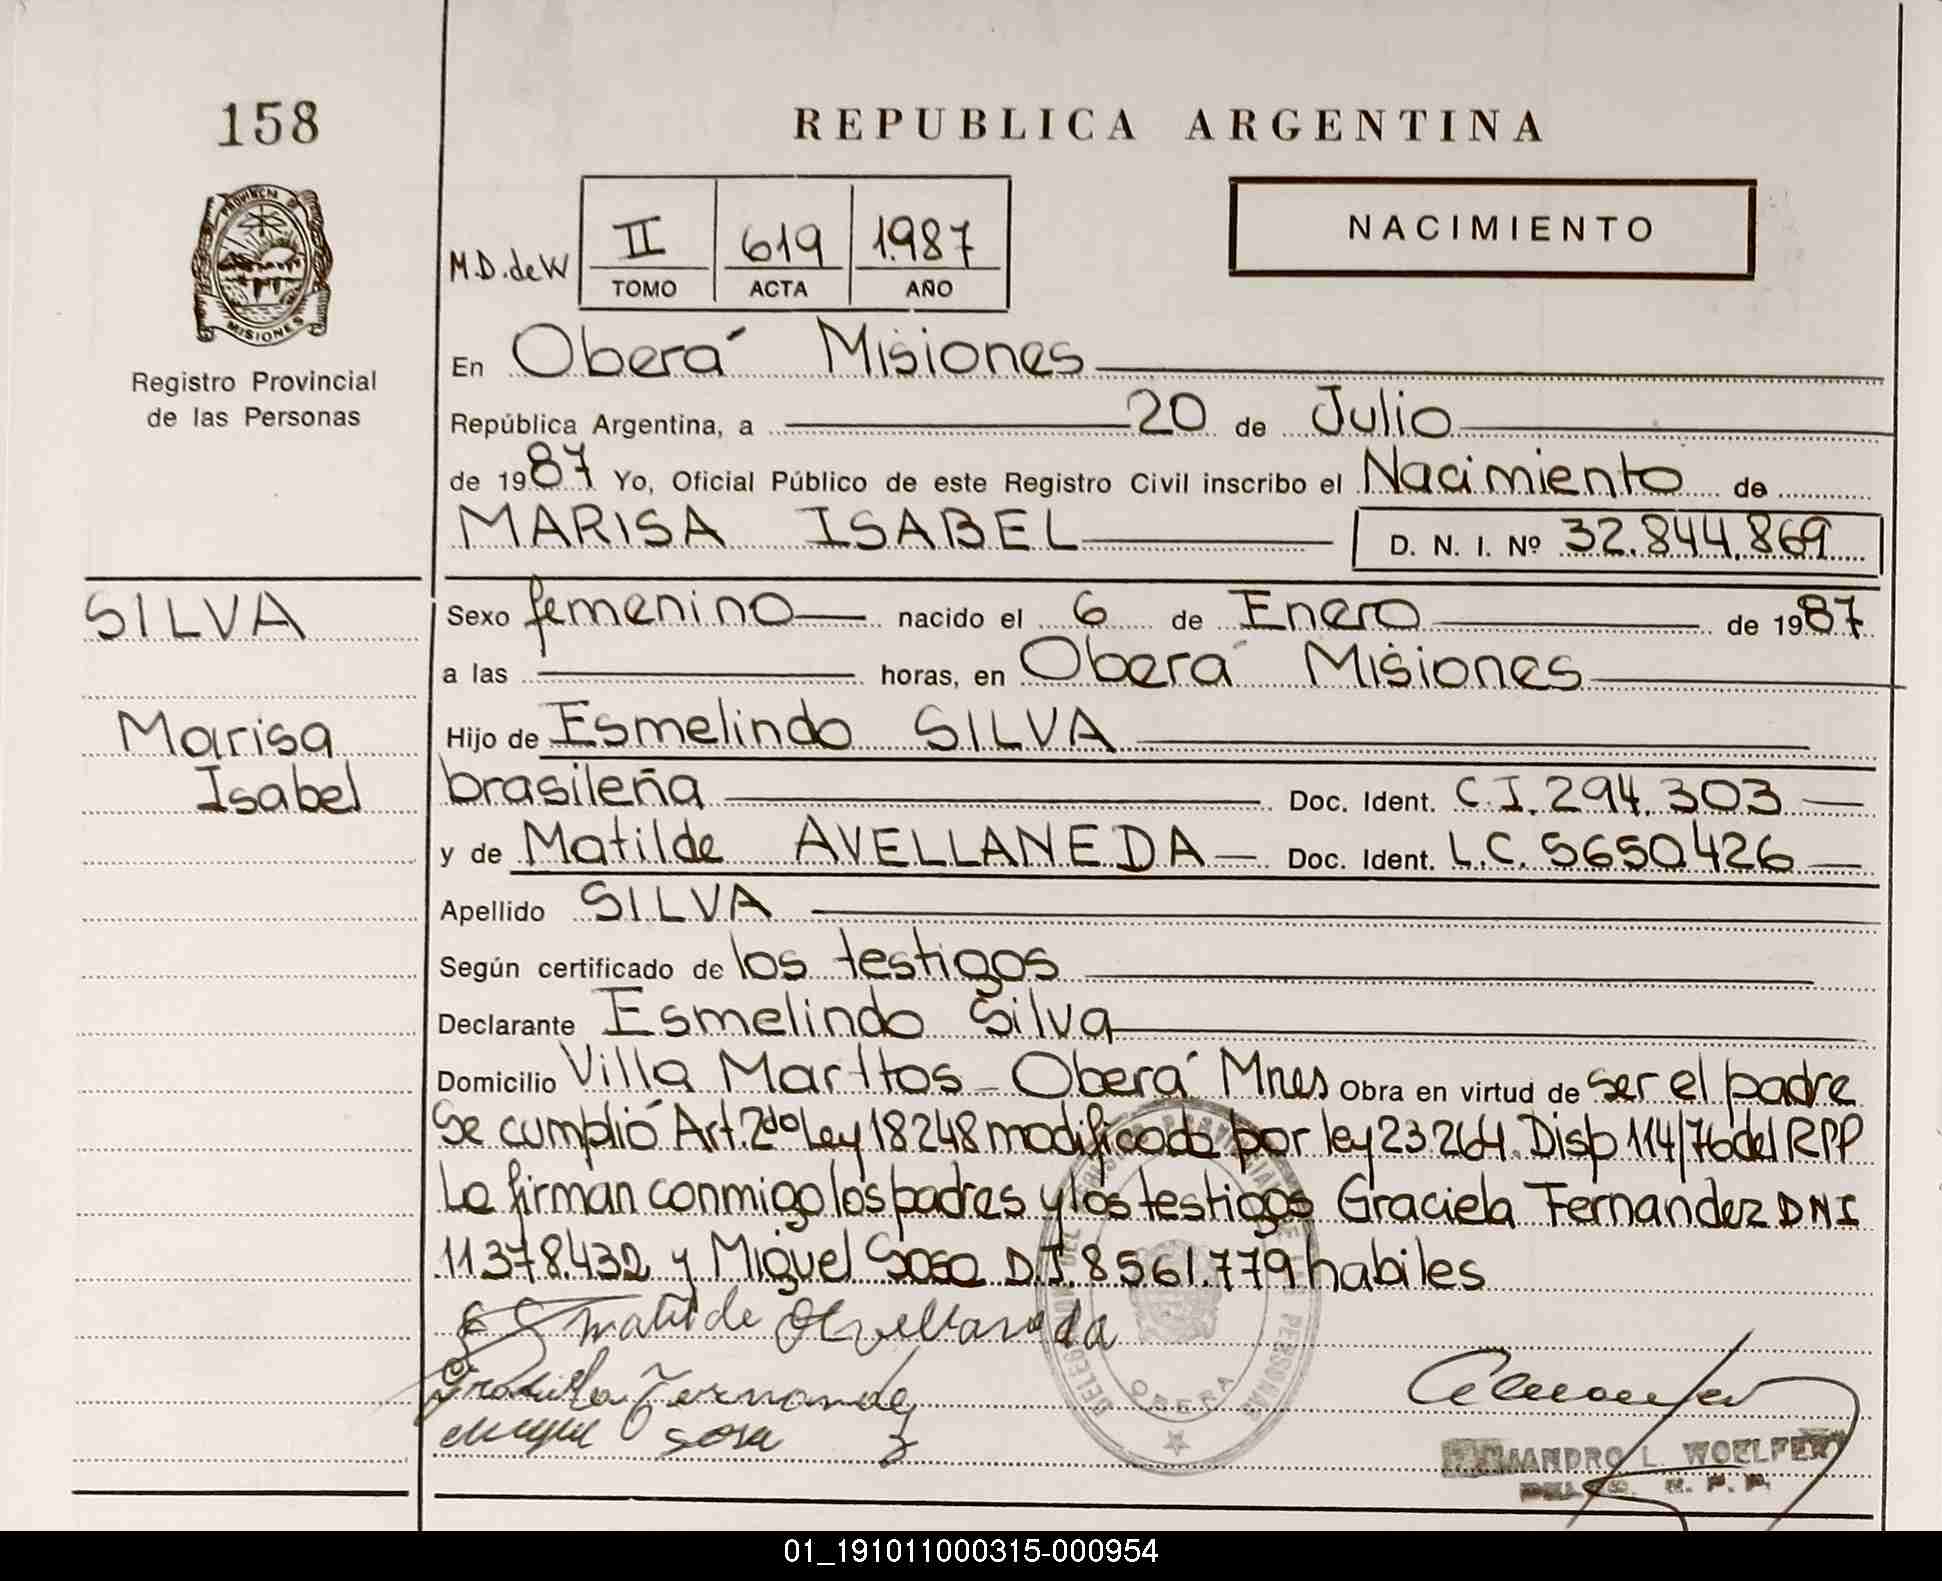 158
REPUBLICA ARGENTINA
PROVINCIA DE
MISIONES
Registro Provincial
de las Personas
M.D. de W
II 619 1.987
TOMO ACTA AÑO
NACIMIENTO
En Oberá Misiones
República Argentina, a 20 de Julio
de 1987 Yo, Oficial Público de este Registro Civil inscribo el Nacimiento de
MARISA ISABEL D. N. I. Nº 32.844.869
SILVA
Marisa
Isabel
Sexo femenino nacido el 6 de Enero de 1987
a las horas, en Oberá Misiones
Hijo de Esmelindo SILVA
brasileña Doc. Ident. C.I. 294.303
y de Matilde AVELLANEDA Doc. Ident. L.C. 5650426
Apellido SILVA
Según certificado de los testigos
Declarante Esmelindo Silva
Domicilio Villa Marttos - Oberá Mnes Obra en virtud de ser el padre
Se cumplió Art. 2do Ley 18248 modificado por ley 23264. Disp 114/76 del RPP
La firman conmigo los padres y los testigos Graciela Fernandez DNI
11.378.432 y Miguel Sosa D.I. 8561.779 habiles
Matilde Avellaneda
Graciela Fernandez
Miguel Sosa
OBERA
L. WOELFERT
R. P. P.
01_191011000315-000954